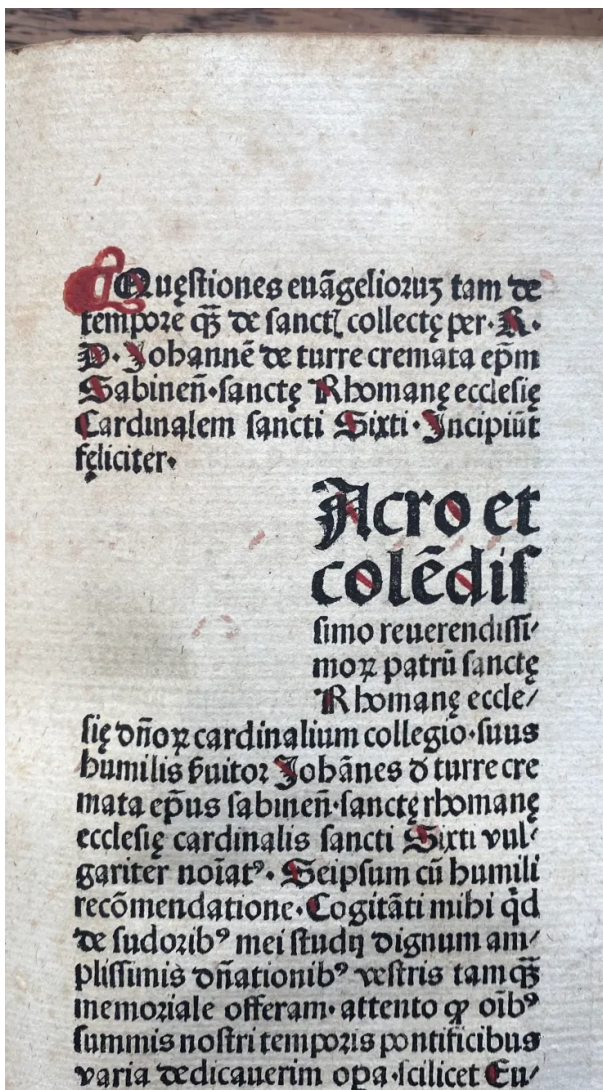 Quęſtiones euāgelioruꝫ tam de
tempore qꝫ̄ de ſanctꝭ collectę per·R·
D·Johannē de turre cremata ep̄m
Sabineñ·ſanctę Rhomanę eccleſię
Cardinalem ſancti Sixti·Incipiūt
fęliciter·
Acro et
colēdiſ
ſimo reuerendiſſi⸗
moꝝ patrū ſanctę
Rhomanę eccle⸗
ſię dñoꝝ cardinalium collegio·ſuus
humilis ẜuitor Johānes d̓ turre cre
mata ep̄us ſabineñ·ſanctę rhomanę
eccleſię cardinalis ſancti Sixti vul⸗
gariter noīatꝰ·Seipſum cū humili
recōmendatione·Cogitāti mihi qͥd
de ſudoribꝰ mei ſtudij dignum am⸗
pliſſimis dñationibꝰ veſtris tamqꝫ̄
memoriale offeram·attento ꝙ oībꝰ
ſummis noſtri temporis pontificibus
varia dedicauerim oꝑa·ſcilicet Eu⸗